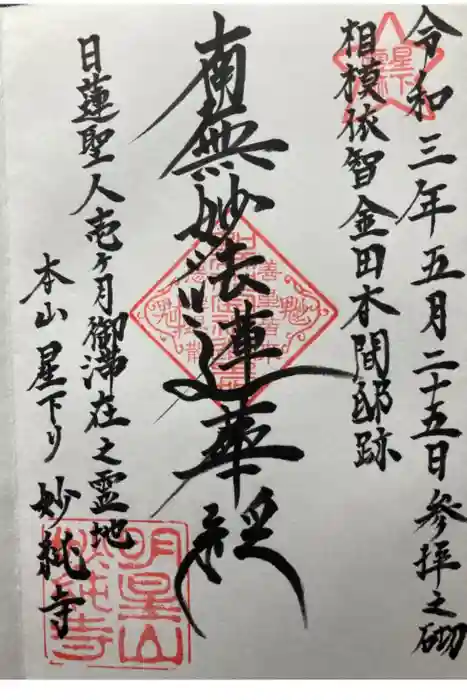 令和三年五月二十五日参拝之砌
相模依智金田本間邸跡
南無妙法蓮華経
日蓮聖人壱ヶ月御滞在之霊地
本山 星下り 妙純寺
明星山
妙純寺